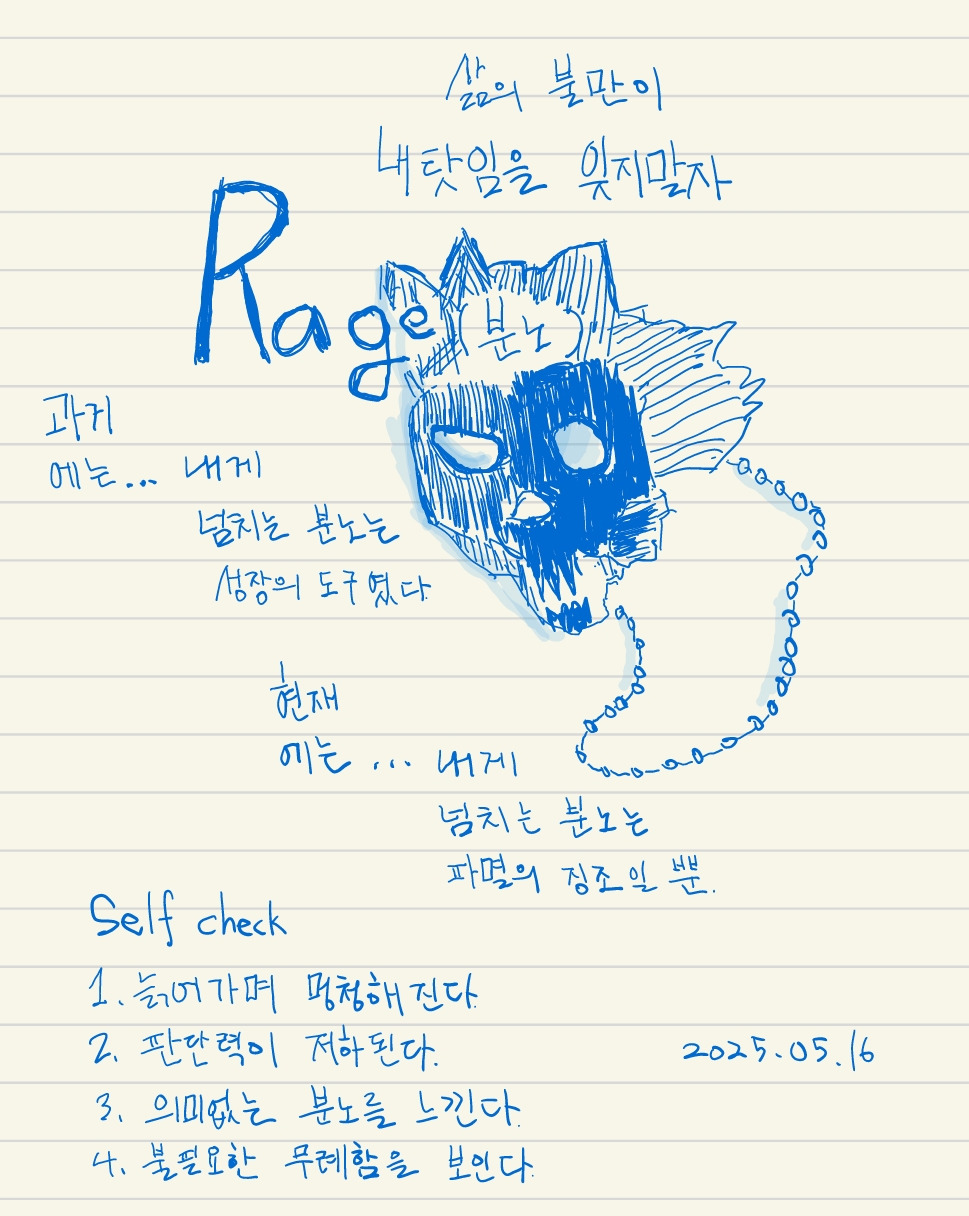 삶의 불만이
내 탓임을 잊지말자
Rage
분노
과거
에는... 내게
넘치는 분노는
성장의 도구였다.
현재
에는... 내게
넘치는 분노는
파멸의 징조일 뿐.
Self check
1. 늙어가며 멍청해진다.
2. 판단력이 저하된다.
2025.05.16
3. 의미없는 분노를 느낀다.
4. 불필요한 무례함을 보인다.